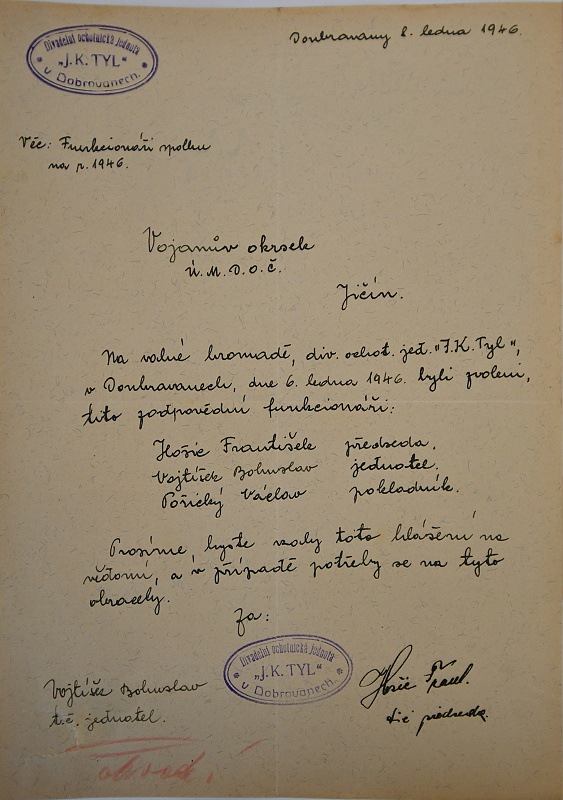 Divadelní ochotnická jednota
"J. K. TYL"
v Dobrovanech.
Doubravany 8. ledna 1946.
Věc: Funkcionáři spolku
na r. 1946.
Vojanův okrsek
Ú. M. D. O. Č.
Jičín.
Na valné hromadě, div. ochot. jed. "J. K. Tyl",
v Doubravanech, dne 6. ledna 1946. byli zvoleni,
tito zodpovědní funkcionáři:
František předseda.
Vojtíšek Bohuslav jednatel.
Pořický Václav pokladník.
Prosíme, byste vzaly toto hlášení na
vědomí, a v případě potřeby se na tyto
obracely.
Za:
Divadelní ochotnická jednota
"J. K. TYL"
v Dobrovanech.
Vojtíšek Bohuslav
t. č. jednatel.
předseda.